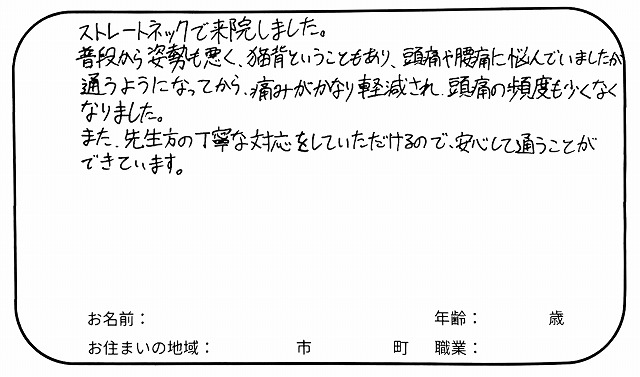 ストレートネックで来院しました。
普段から姿勢も悪く、猫背ということもあり、頭痛や腰痛に悩んでいましたが
通うようになってから、痛みがかなり軽減され、頭痛の頻度も少なく
なりました。
また、先生方の丁寧な対応をしていただけるので、安心して通うことが
できています。
お名前： 年齢： 歳
お住まいの地域： 市 町 職業：